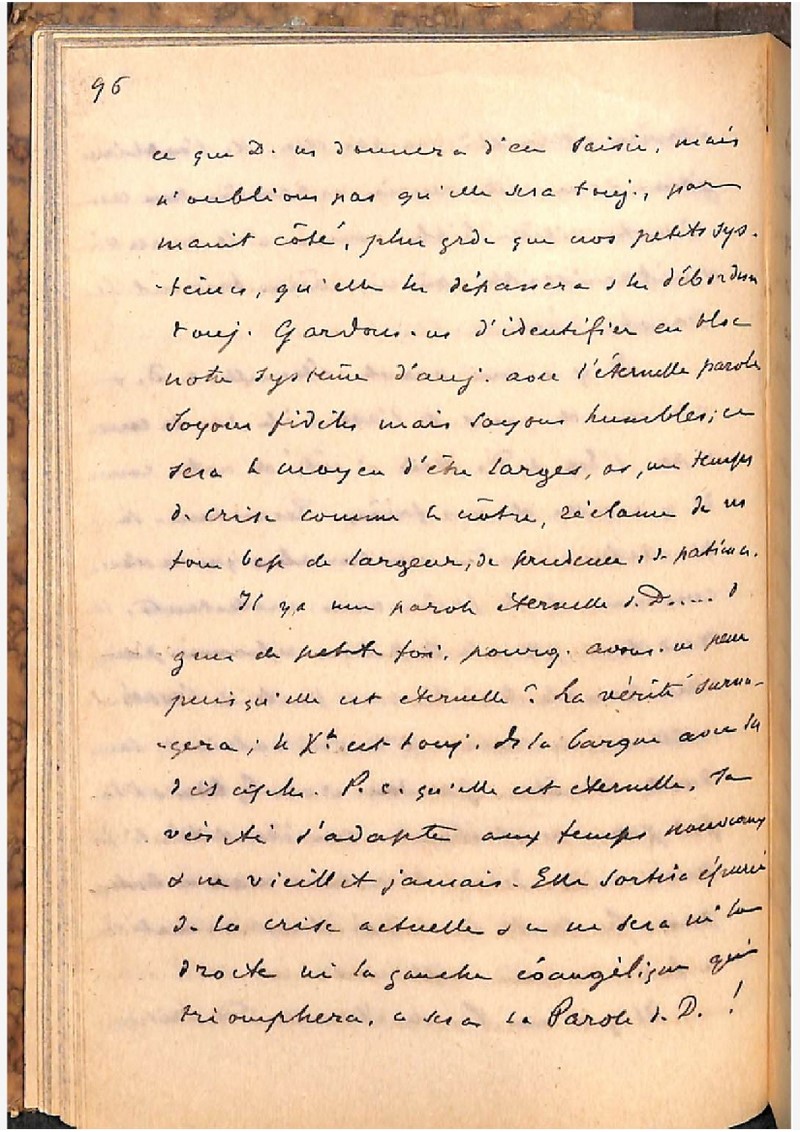 96
ce que D. ns donnera d'en saisir, mais
n'oublions pas qu'elle sera touj., par
maint côté, plus grde que nos petits sys-
-tèmes, qu'elle les dépassera & les débordera
touj. Gardons-ns d'identifier en bloc
notre système d'auj. avec l'éternelle parole
Soyons fidèles mais soyons humbles; ce
sera le moyen d'être larges, or, un temps
de crise comme le nôtre, réclame de ns
tous bcp de largeur, de prudence, & de patience.
Il y a une parole éternelle d. D....
gens de petite foi, pourq. avons-ns peur
puisqu'elle est éternelle? La vérité surna-
-gera; le Xt est touj. ds la barque avec les
disciples. P. c. qu'elle est éternelle, sa
vérité s'adapte aux temps nouveaux
& ne vieillit jamais. Elle sortira épurée
de la crise actuelle & ce ne sera ni la
droite ni la gauche évangélique qui
triomphera, ce sera la Parole d. D. !